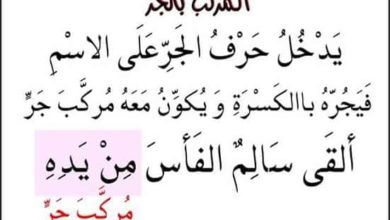 المركب بالجر
يَدْخُلُ حَرْفُ الجَرِّ عَلَى الاسْمِ
فَيَجُرُّهُ باالكَسْرَةِ وَ يُكَوِّنُ مَعَهُ مُركَّبَ جَرٍّ
ألقَى سَالِمٌ الفَأسَ مِنْ يَدِهِ
مُركَّبَ جَرٍّ